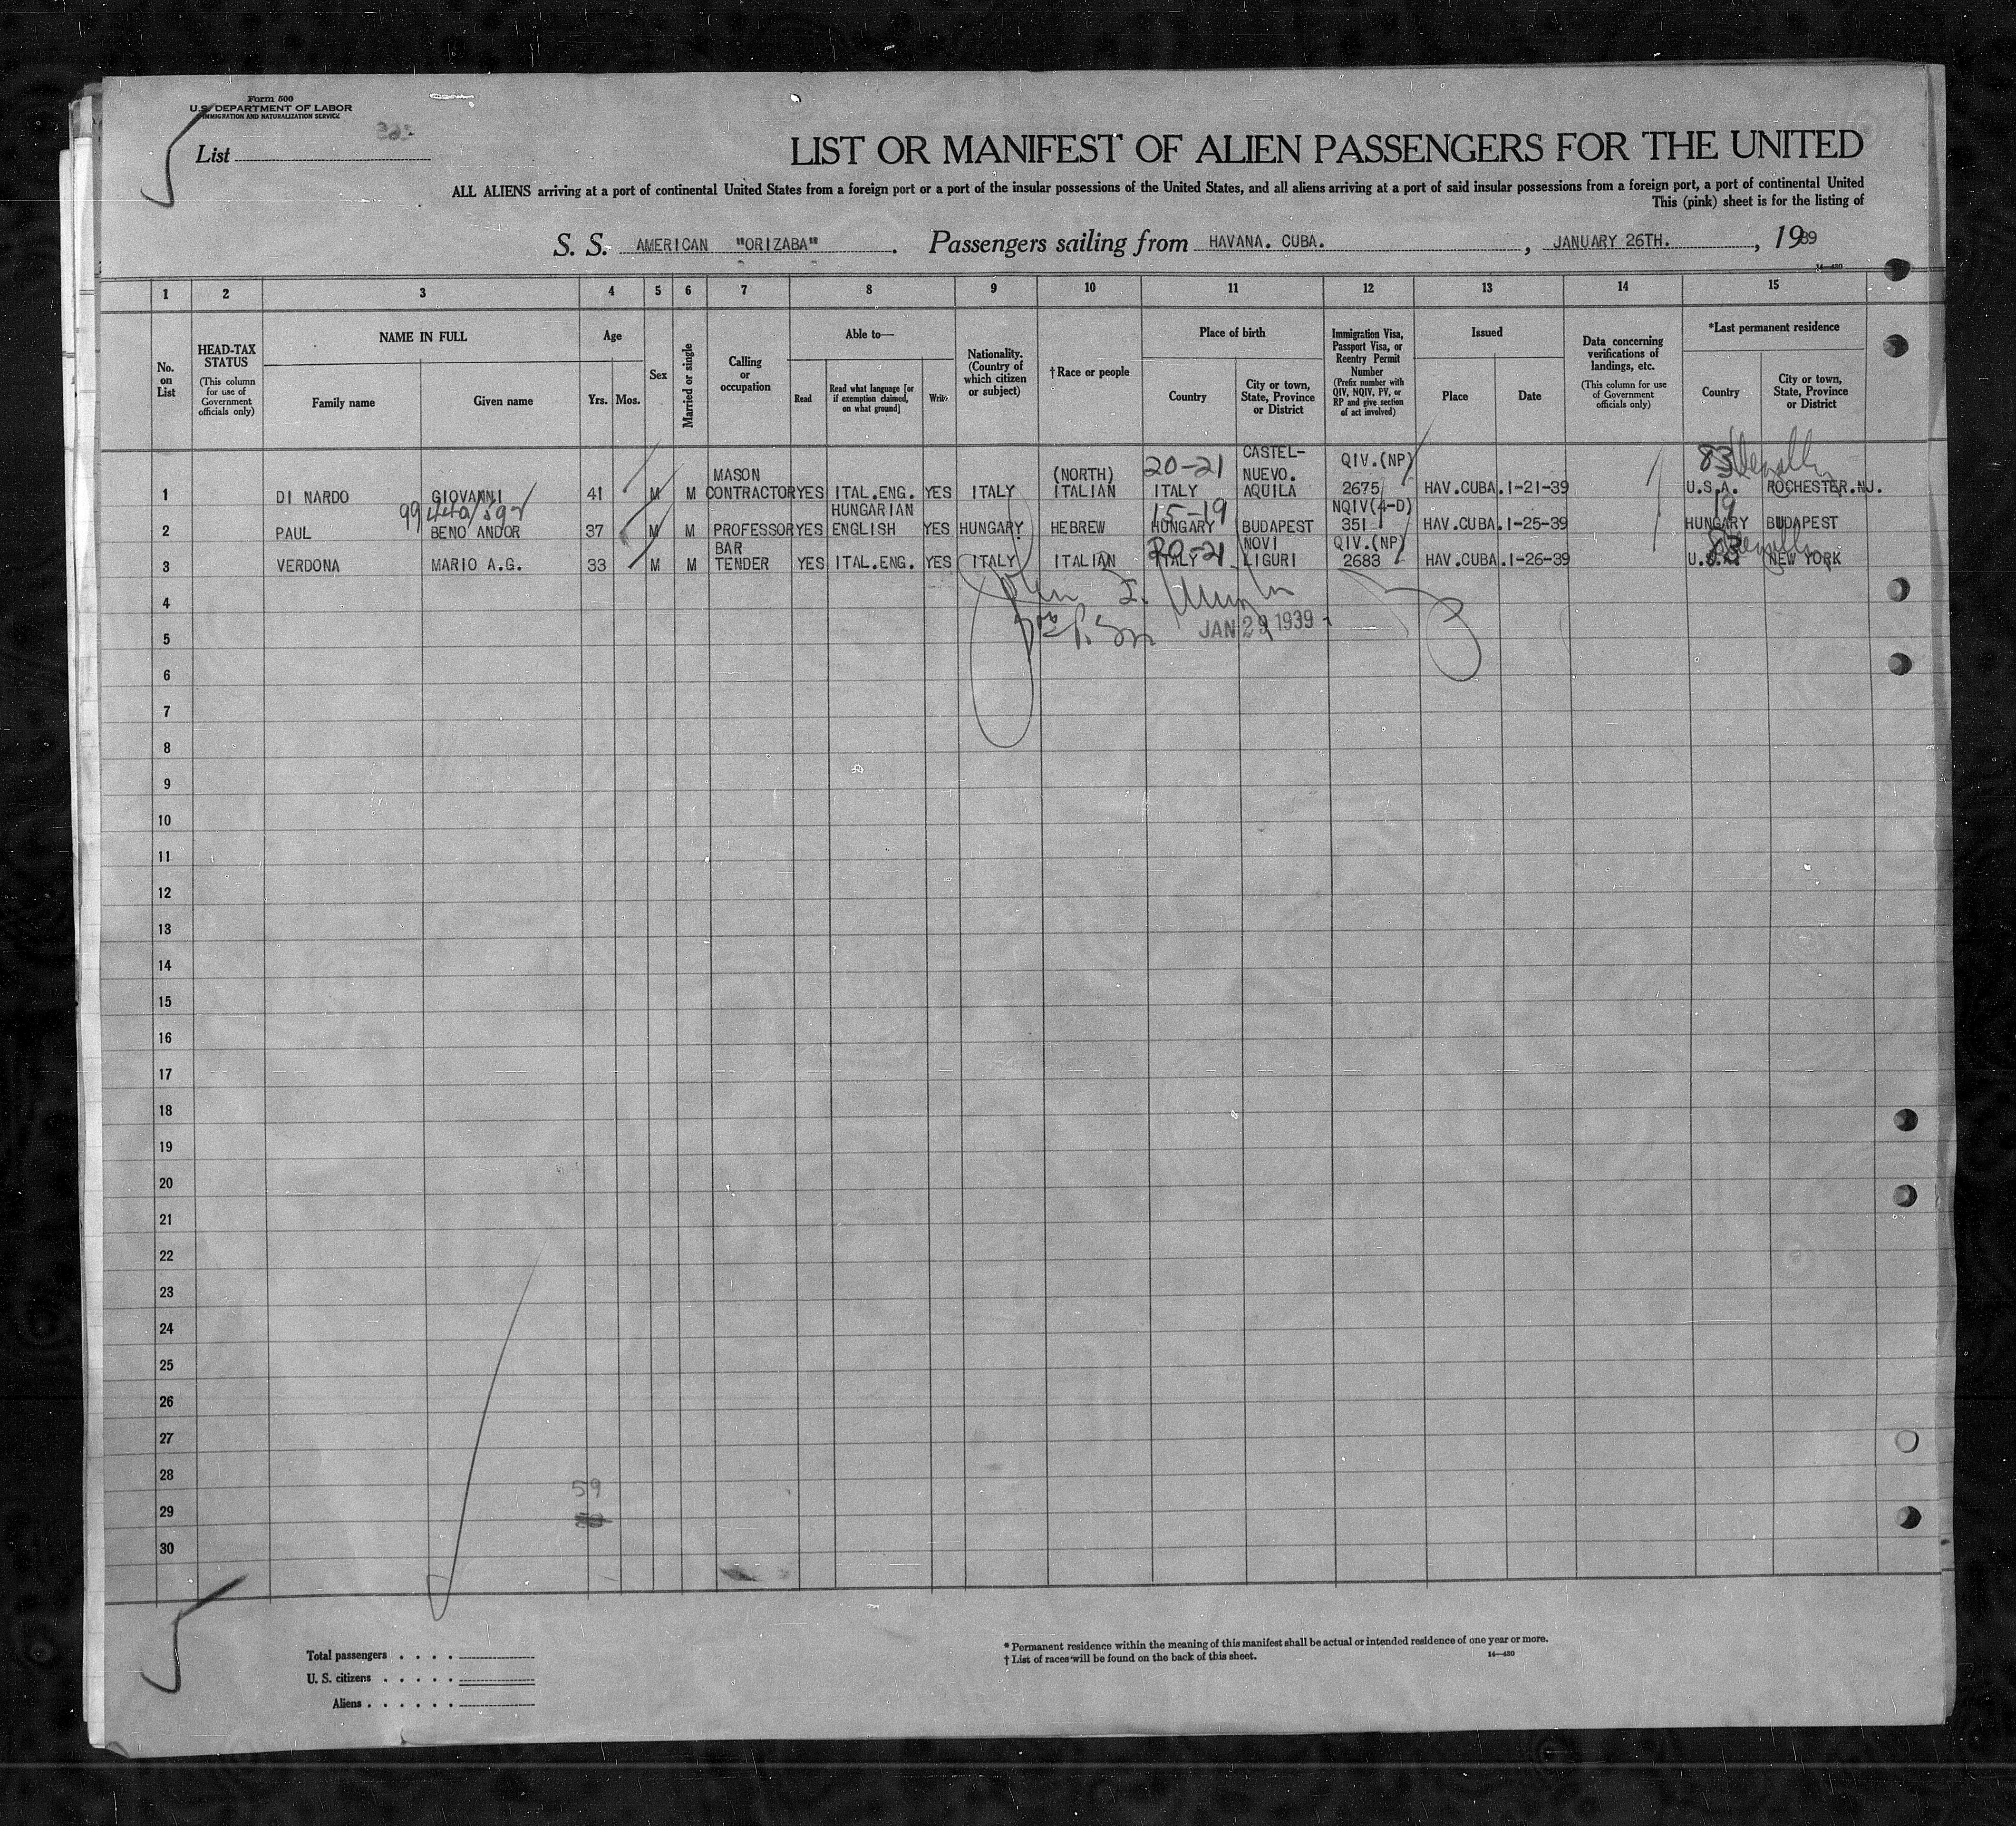 Form 500
U.S. DEPARTMENT OF LABOR
IMMIGRATION AND NATURALIZATION SERVICE
List
LIST OR MANIFEST OF ALIEN PASSENGERS FOR THE UNITED
ALL ALIENS arriving at a port of continental United States from a foreign port or a port of the insular possessions of the United States, and all aliens arriving at a port of said insular possessions from a foreign port, a port of continental United
This (pink) sheet is for the listing of
S. S. AMERICAN "ORIZABA". Passengers sailing from HAVANA. CUBA., JANUARY 26TH., 1939
14—430
1 2 3 4 5 6 7 8 9 10 11 12 13 14 15
No. on List
HEAD-TAX STATUS (This column for use of Government officials only)
NAME IN FULL
Family name Given name
Age
Yrs. Mos.
Sex
Married or single
Calling or occupation
Able to—
Read
Read what language [or if exemption claimed, on what ground]
Write
Nationality. (Country of which citizen or subject)
†Race or people
Place of birth
Country
City or town, State, Province or District
Immigration Visa, Passport Visa, or Reentry Permit Number (Prefix number with QIV, NQIV, PV, or RP and give section of act involved)
Issued
Place Date
Data concerning verifications of landings, etc. (This column for use of Government officials only)
*Last permanent residence
Country
City or town, State, Province or District
1 DI NARDO GIOVANNI 41 M M MASON CONTRACTOR YES ITAL.ENG. YES ITALY (NORTH) ITALIAN 20-21 ITALY CASTEL-NUEVO. AQUILA QIV.(NP) 2675 HAV.CUBA. 1-21-39 83 U.S.A. ROCHESTER.NJ.
2 PAUL BENO ANDOR 37 M M PROFESSOR YES HUNGARIAN ENGLISH YES HUNGARY HEBREW 15-19 HUNGARY BUDAPEST NQIV(4-D) 351 HAV.CUBA. 1-25-39 19 HUNGARY BUDAPEST
3 VERDONA MARIO A.G. 33 M M BAR TENDER YES ITAL.ENG. YES ITALY ITALIAN 20-21 ITALY NOVI LIGURI QIV.(NP) 2683 HAV.CUBA. 1-26-39 83 U.S.A. NEW YORK
4
5 JAN 29 1939
6
7
8
9
10
11
12
13
14
15
16
17
18
19
20
21
22
23
24
25
26
27
28 59
29
30
Total passengers
U. S. citizens
Aliens
* Permanent residence within the meaning of this manifest shall be actual or intended residence of one year or more.
† List of races will be found on the back of this sheet.
14—430